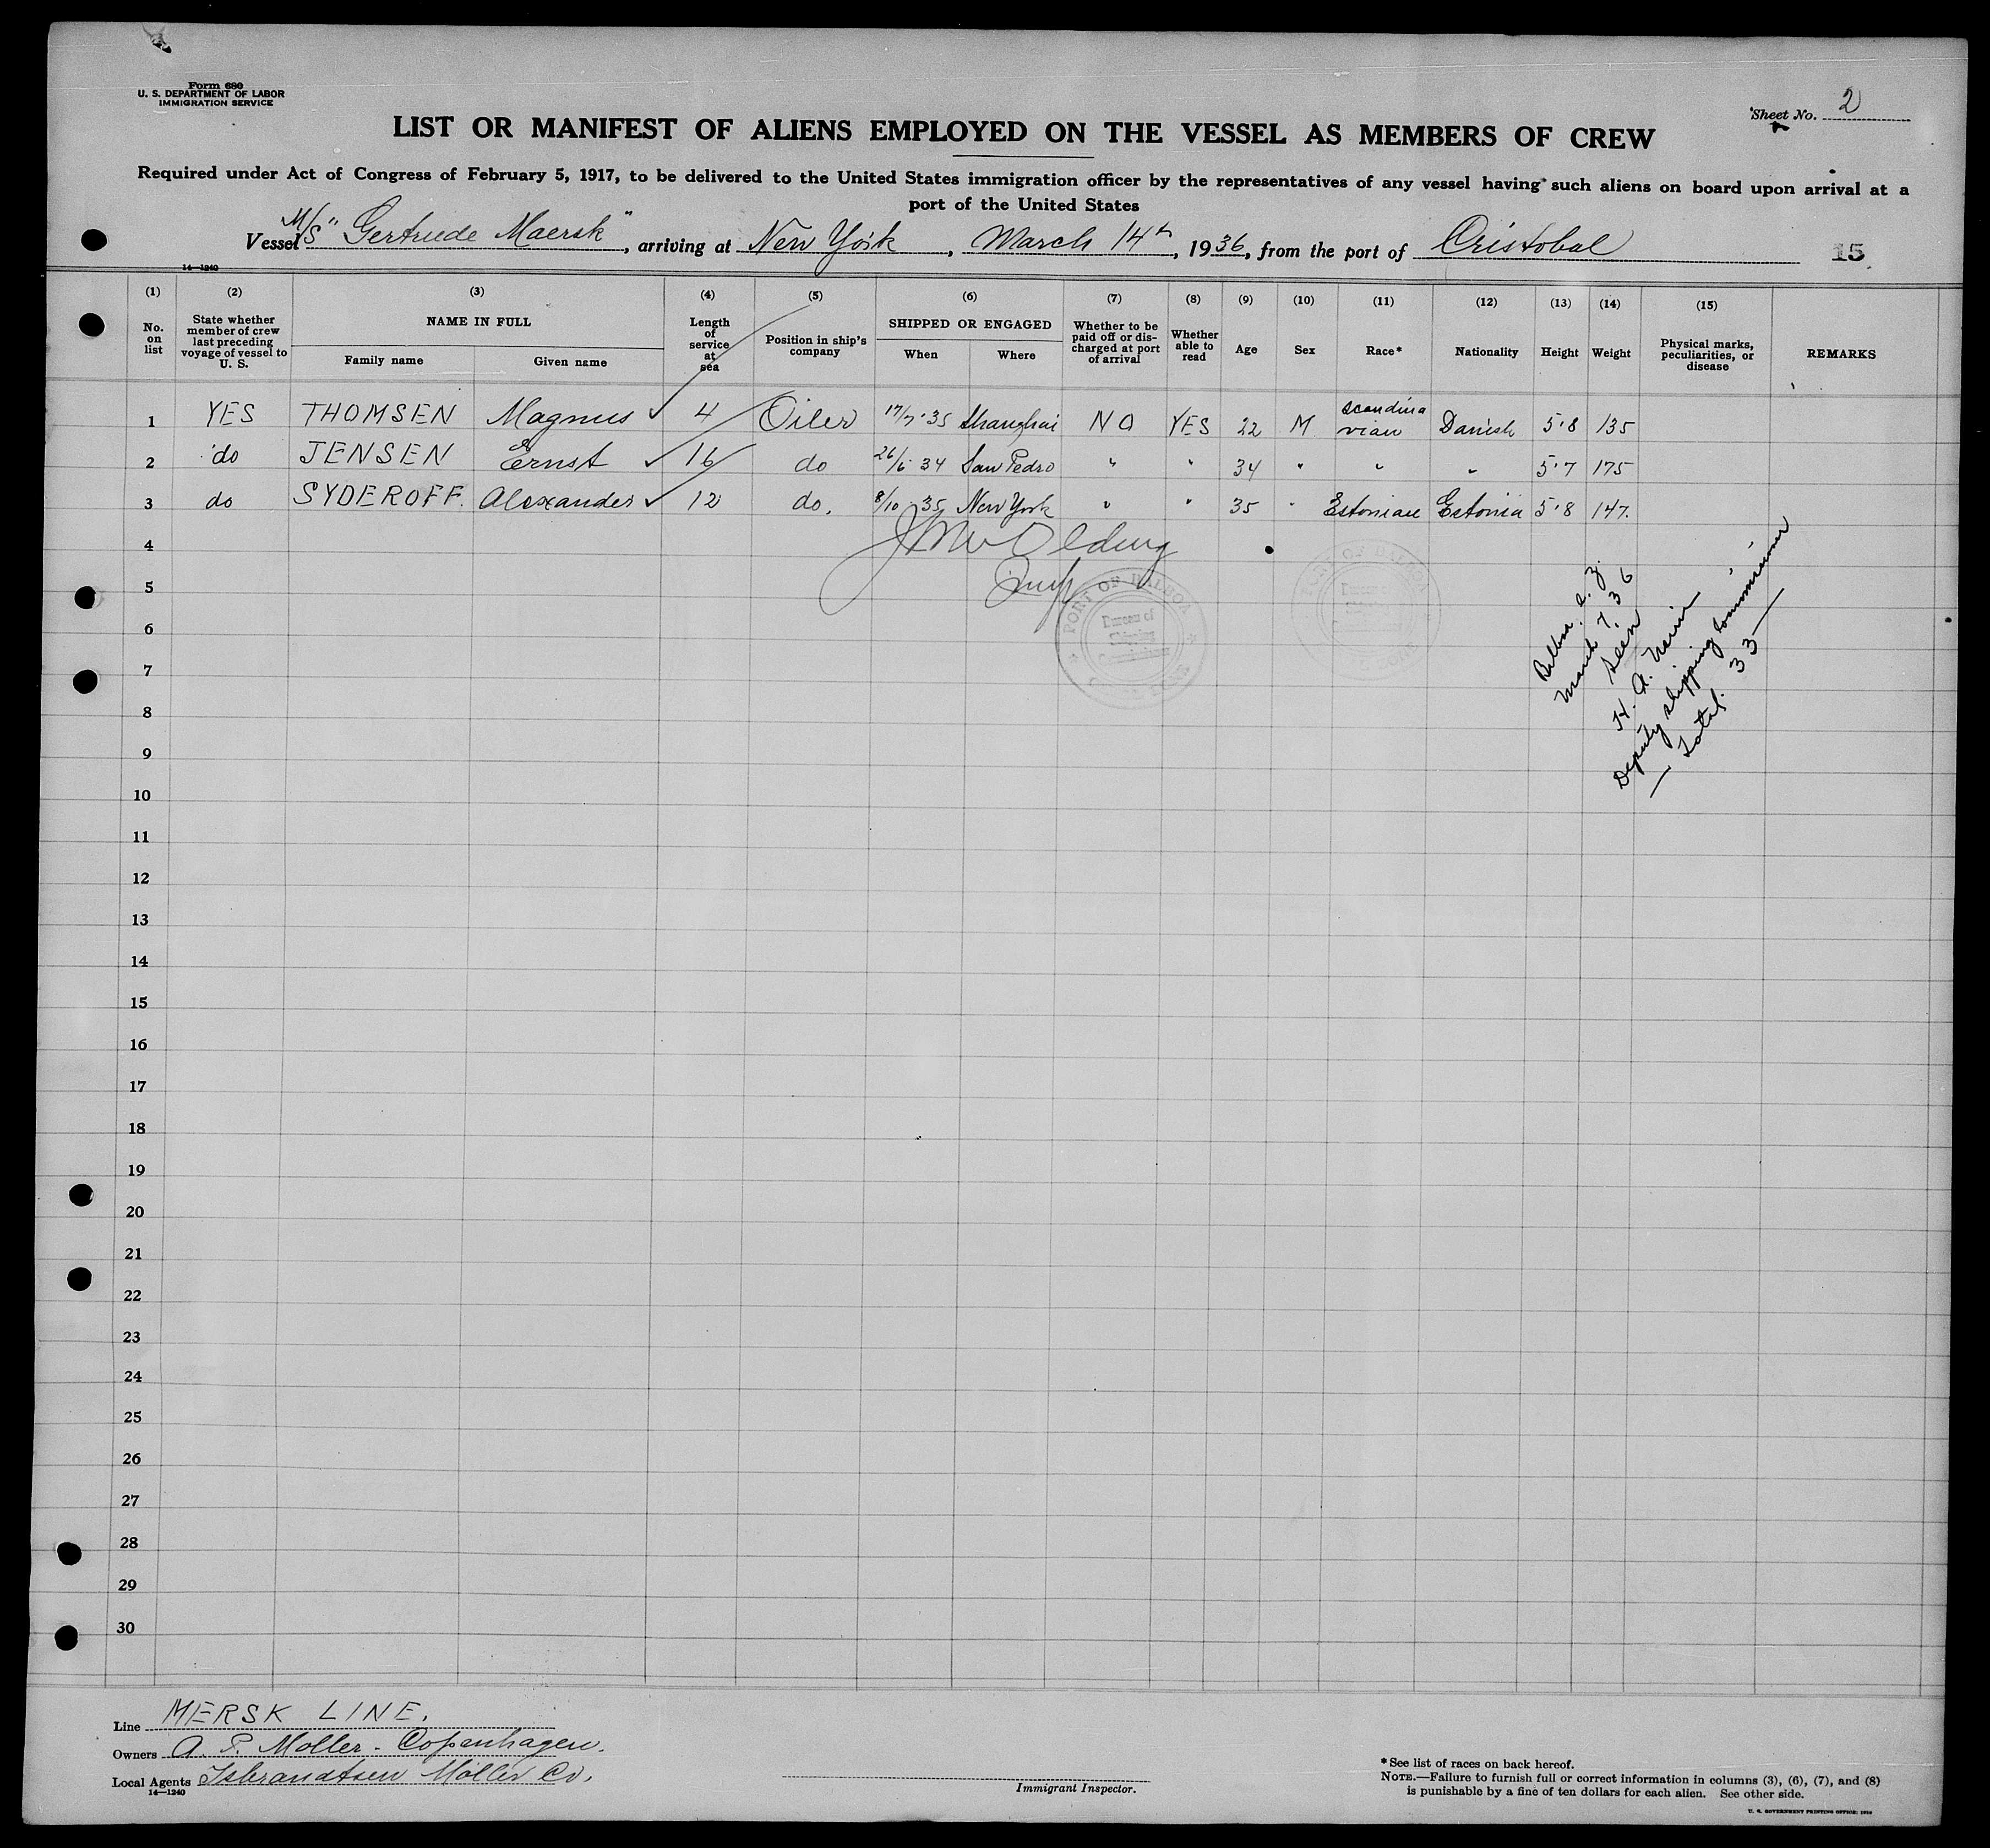 Form 680
U. S. DEPARTMENT OF LABOR
IMMIGRATION SERVICE
Sheet No. 2
LIST OR MANIFEST OF ALIENS EMPLOYED ON THE VESSEL AS MEMBERS OF CREW
Required under Act of Congress of February 5, 1917, to be delivered to the United States immigration officer by the representatives of any vessel having such aliens on board upon arrival at a
port of the United States
Vessel M/S "Gertrude Maersk", arriving at New York, March 14th, 1936, from the port of Cristobal 15
14—1240
(1) (2) (3) (4) (5) (6) (7) (8) (9) (10) (11) (12) (13) (14) (15)
No. on list State whether member of crew last preceding voyage of vessel to U. S. NAME IN FULL Family name Given name Length of service at sea Position in ship's company SHIPPED OR ENGAGED When Where Whether to be paid off or discharged at port of arrival Whether able to read Age Sex Race* Nationality Height Weight Physical marks, peculiarities, or disease REMARKS
1 YES THOMSEN Magnus ✓ 4 Oiler 17/7 '35 Shanghai NO YES 22 M Scandinavian Danish 5'8 135
2 do JENSEN Ernst ✓ 16 do 26/6 34 San Pedro " " 34 " " " 5'7 175
3 do SYDEROFF. Alexander ✓ 12 do. 8/10 35 New York " " 35 " Estonian Estonia 5'8 147.
4
5
PORT OF BALBOA
Bureau of
Shipping
Commissioner
PORT OF BALBOA
Balboa. C. Z.
March 7, 36
Seen
H. A.
Deputy Shipping Commissioner
— Total. 33 —
6
7
8
9
10
11
12
13
14
15
16
17
18
19
20
21
22
23
24
25
26
27
28
29
30
Line MERSK LINE.
Owners A. P. Moller - Copenhagen.
Local Agents Isbrandtsen Moller Co.
14—1240
Immigrant Inspector.
* See list of races on back hereof.
NOTE.—Failure to furnish full or correct information in columns (3), (6), (7), and (8)
is punishable by a fine of ten dollars for each alien. See other side.